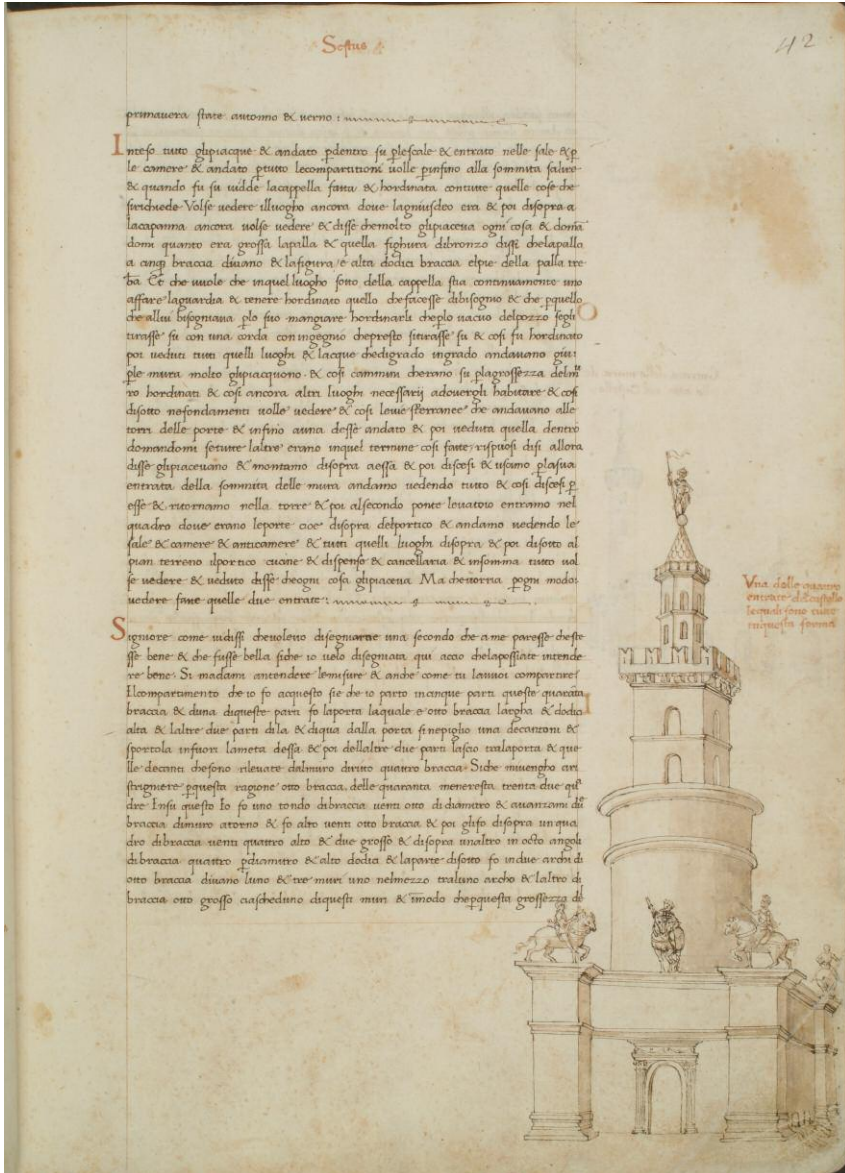 Sestus
42
primauera state autonno & verno :
Inteso tutto glipiacque & andato pdentro su plescale & entrato nelle sale & p
le camere & andato ptutto lecompartitioni uolle pinfino alla sommita salire
& quando fu su uidde lacappella fatta & hordinata contutte quelle cose che
sirichiede Volse vedere illuogho ancora dove lagniusdeo era & poi disopra a
lacapanna ancora volse vedere & disse chemolto glipiaceua ogni cosa & domā
domi quanto era grossa lapalla & quella fighura dibronzo dissi chelapalla
a cinq braccia diuano & lafigura e alta dodici braccia elpie della palla tre
ba Et che uuole che inquel luogho sotto della cappella stia continuamente uno
affare laguardia & tenere hordinato quello chefacesse dibisogno & che pquello
che allui bisogniaua plo suo mangiare hordinarli cheplo uacuo delpozzo segli
tirasse su con una corda con ingegnio chepresto sitirasse su & cosi fu hordinato
poi ueduti tutti quelli luoghi & lacque chedigrado ingrado andauano giu
ple mura molto glipiacquono & cosi cammini cherano su plagrossezza delmu
ro hordinati & cosi ancora altri luoghi necessarij adouergli habitare & cosi
disotto nefondamenti uolle uedere & cosi leuie socterranee che andauano alle
torri delle porte & infino auna desse andato & poi ueduta quella dentro
domandomi setutte laltre erano inquel termine cosi fatte rispuosi disi allora
disse glipiaceuano & montamo disopra aessa & poi discesi & uscimo plasua
entrata della sommita delle mura andamo uedendo tutto & cosi discesi p
esse & ritornamo nella torre & poi alsecondo ponte leuatoio entramo nel
quadro doue erano leporte cioe disopra delportico & andamo uedendo le
sale & camere & anticamere & tutti quelli luoghi disopra & poi disotto al
pian terreno ilportico cucine & dispense & cancellaria & insomma tutto uol
se uedere & ueduto disse cheogni cosa glipiaceua Ma cheuorria pogni modo
uedere fare quelle due entrate :
Signiore come uidissi cheuoleuo disegniarne una secondo che a me paresse cheste
sse bene & che fusse bella siche io uelo disegniata qui accio chelapossiate intende
re bene. Si madami antendere lemisure & anche come tu lauuoi compartire
Elcompartimento che io fo acquesto sie che io parto incinque parti queste quaranta
braccia & duna diqueste parti fo laporta laquale e otto braccia largha & dodici
alta & laltre due parti dila & diqua dalla porta sinepiglio una decantoni &
sportola infuori lameta dessa & poi dellaltre due parti lascio tralaporta & que
lle decanti chesono rileuate dalmuro diritto quattro braccia. Siche miuengho ari
strignere pquesta ragione otto braccia delle quaranta meneresta trenta due qua
dre Insu questo Io fo uno tondo dibraccia uenti otto di diamitro & auanzami du
braccia dimuro atorno & fo alto uenti otto braccia & poi glifo disopra un qua
dro dibraccia uenti quattro alto & due grosso & disopra unaltro in octo angoli
dibraccia quattro pdiamitro & alto dodici & laparte disotto fo in due archi di
otto braccia diuano luno & tre muri uno nelmezzo traluno archo & laltro di
braccia otto grosso ciascheduno diquesti muri & imodo chepquesta grossezza de
Vna delle quattro
entrate del castello
lequali sono tutte
inquesta forma